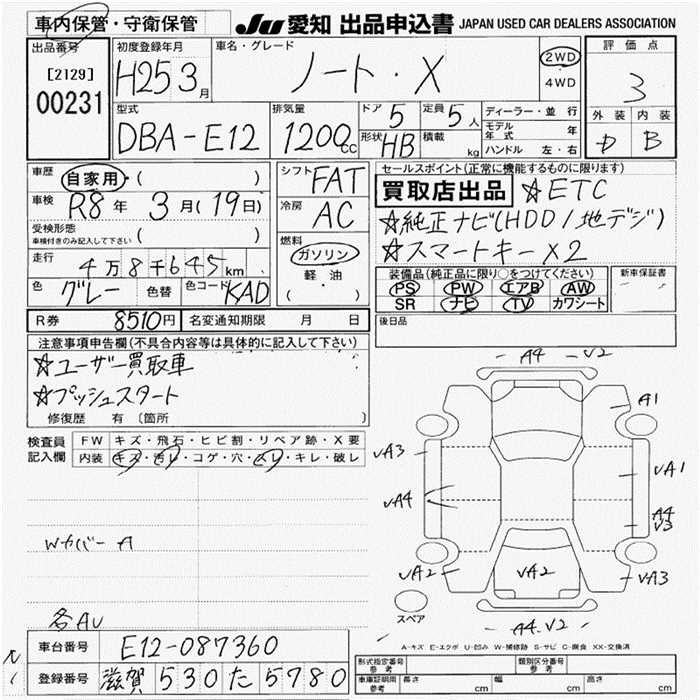 車内保管・守衛保管
JU 愛知 出品申込書 JAPAN USED CAR DEALERS ASSOCIATION
出品番号
[2129]
00231
初度登録年月
H25 3月
車名・グレード
ノート・X
2WD
4WD
評価点
3
外装 内装
D B
型式
DBA-E12
排気量
1200cc
ドア 5
定員 5人
形状 HB
積載 kg
ディーラー・並行
モデル年式 年
ハンドル 左・右
車歴
自家用・( )
車検
R8年 3月(19日)
受検形態
車検付きのみ記入して下さい ( )
走行
4万8千645km
色 グレー 色替 色コード KAD
シフト FAT
冷房 AC
燃料
ガソリン
軽油
( ・ )
セールスポイント(正常に機能するものに限ります)
買取店出品 ☆ETC
☆純正ナビ(HDD/地デジ)
☆スマートキーx2
装備品(純正品に限り○をつけてください)
PS PW エアB AW
SR ナビ TV カワシート
新車保証書
後日品
R券 8510円 名変通知期限 月 日
注意事項申告欄(不具合内容等は具体的に記入して下さい)
☆ユーザー買取車
☆プッシュスタート
修復歴 有 〔箇所 〕
検査員記入欄
FW キズ・飛石・ヒビ割・リペア跡・X要
内装 キズ・汚レ・コゲ・穴・スレ・キレ・破レ
Wカバー A
各AU
車台番号 E12-087360
登録番号 滋賀 530 た 5780
A4 V2
A1
VA3
VA1
VA4
A4
V3
VA2
VA2
VA3
スペア
A4.V2
A-キズ E-エクボ U-凹み W-補修跡 S-サビ C-腐食 XX-交換済
形式指定番号 参考
類別区分番号 参考
車庫証明用 参考 長さ cm 幅 cm 高さ cm